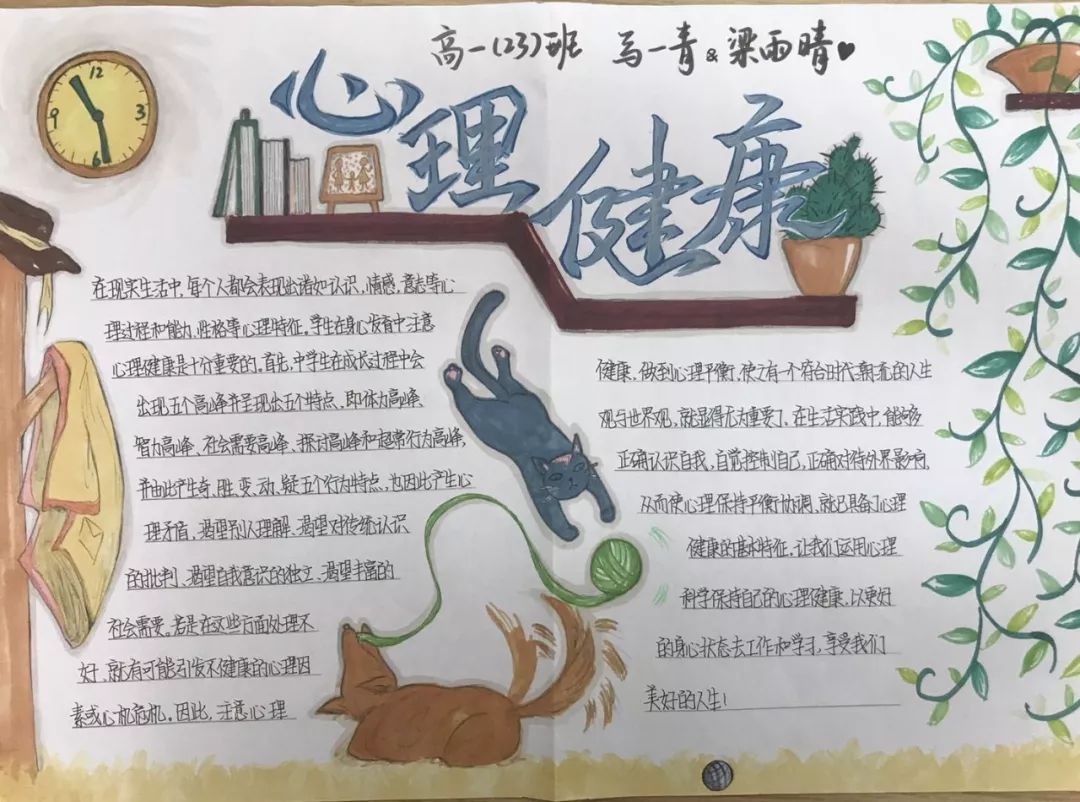 高一(23)班 马一青&梁雨晴♥
心理健康
12
3
6
9
在现实生活中,每个人都会表现出诸如认识,情感,意志等心
理过程和能力,性格等心理特征。学生在身心发育中注意
心理健康是十分重要的。首先,中学生在成长过程中会
出现五个高峰并呈现出五个特点,即体力高峰、
智力高峰、社会需要高峰、探讨高峰和超常行为高峰,
并由此产生奇、胜、变、动、疑五个行为特点,也因此产生心
理矛盾、渴望别人理解、渴望对传统认识
的批判、渴望自我意识的独立、渴望丰富的
社会需要。若是在这些方面处理不
好,就有可能引发不健康的心理因
素或心机危机。因此,注意心理
健康,做到心理平衡,使之有一个符合时代潮流的人生
观与世界观,就显得尤为重要了。在生活实践中,能够
正确认识自我,自觉控制自己,正确对待外界影响,
从而使心理保持平衡协调,就已具备了心理
健康的基本特征,让我们运用心理
科学保持自己的心理健康,以更好
的身心状态去工作和学习,享受我们
美好的人生!